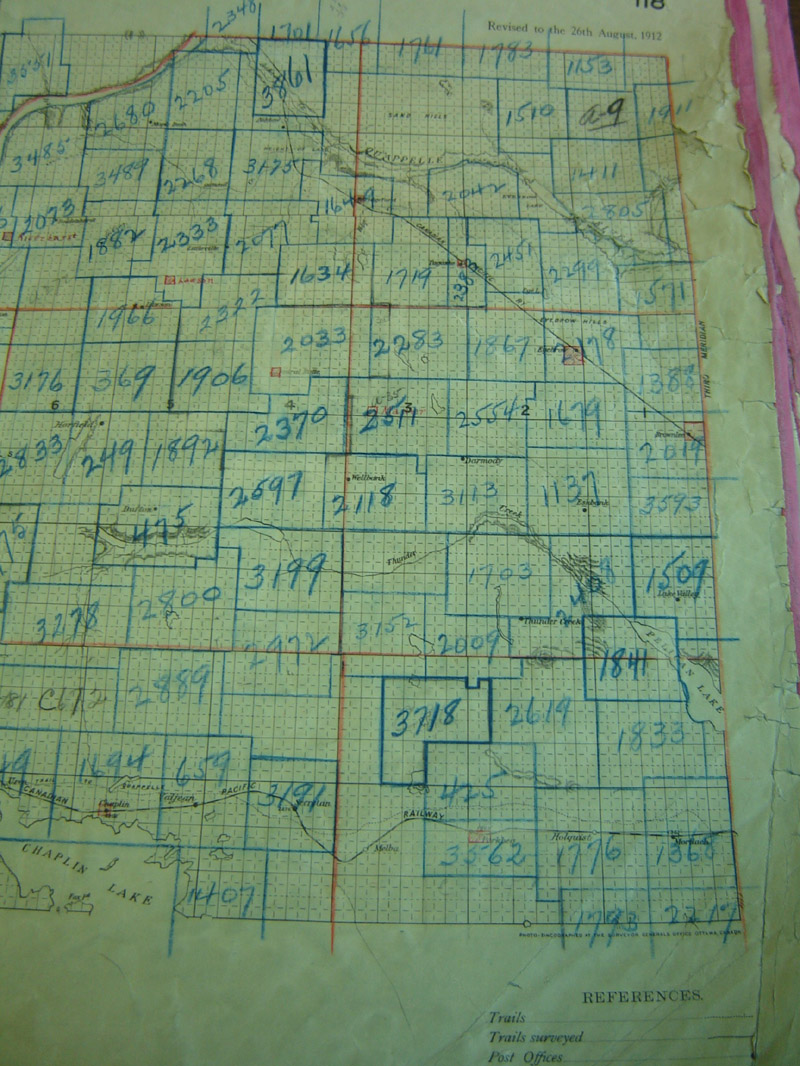 118
Revised to the 26th August, 1912
2348 1701 1656 1761 1783 1153
3551 2680 2205 3861 1510 a-9 1911
SAND HILLS
3485 3489 2268 3175 QU'APPELLE 2042 1411
2805
2023 1882 2333 2077 2451 2299
1634 1719 2385 1571
1966 2322
EYEBROW HILLS
2033 2283 1867 2178
THIRD MERIDIAN
3176 369 1906 1388
6 5 4 3 2 1
2370 2511 2554 1679
2833 249 1892 2019
Darmody
Wellbank
2597 2118 3113 1137 3593
Eskbank
475
Thunder Creek
3199 1703 1509
Lake Valley
3278 2800 3152 2009
Thunder Creek
2972 1841
PELICAN LAKE
C672 2889 3718 2619 1833
1694 659 3191 425
CANADIAN PACIFIC RAILWAY
Chaplin
Valjean
Melba
3562 1776 1368
Holquist
Mortlach
CHAPLIN LAKE
1407 1793 2217
PHOTO-LITHOGRAPHED AT THE SURVEYOR GENERAL'S OFFICE OTTAWA, CANADA
REFERENCES.
Trails
Trails surveyed
Post Offices